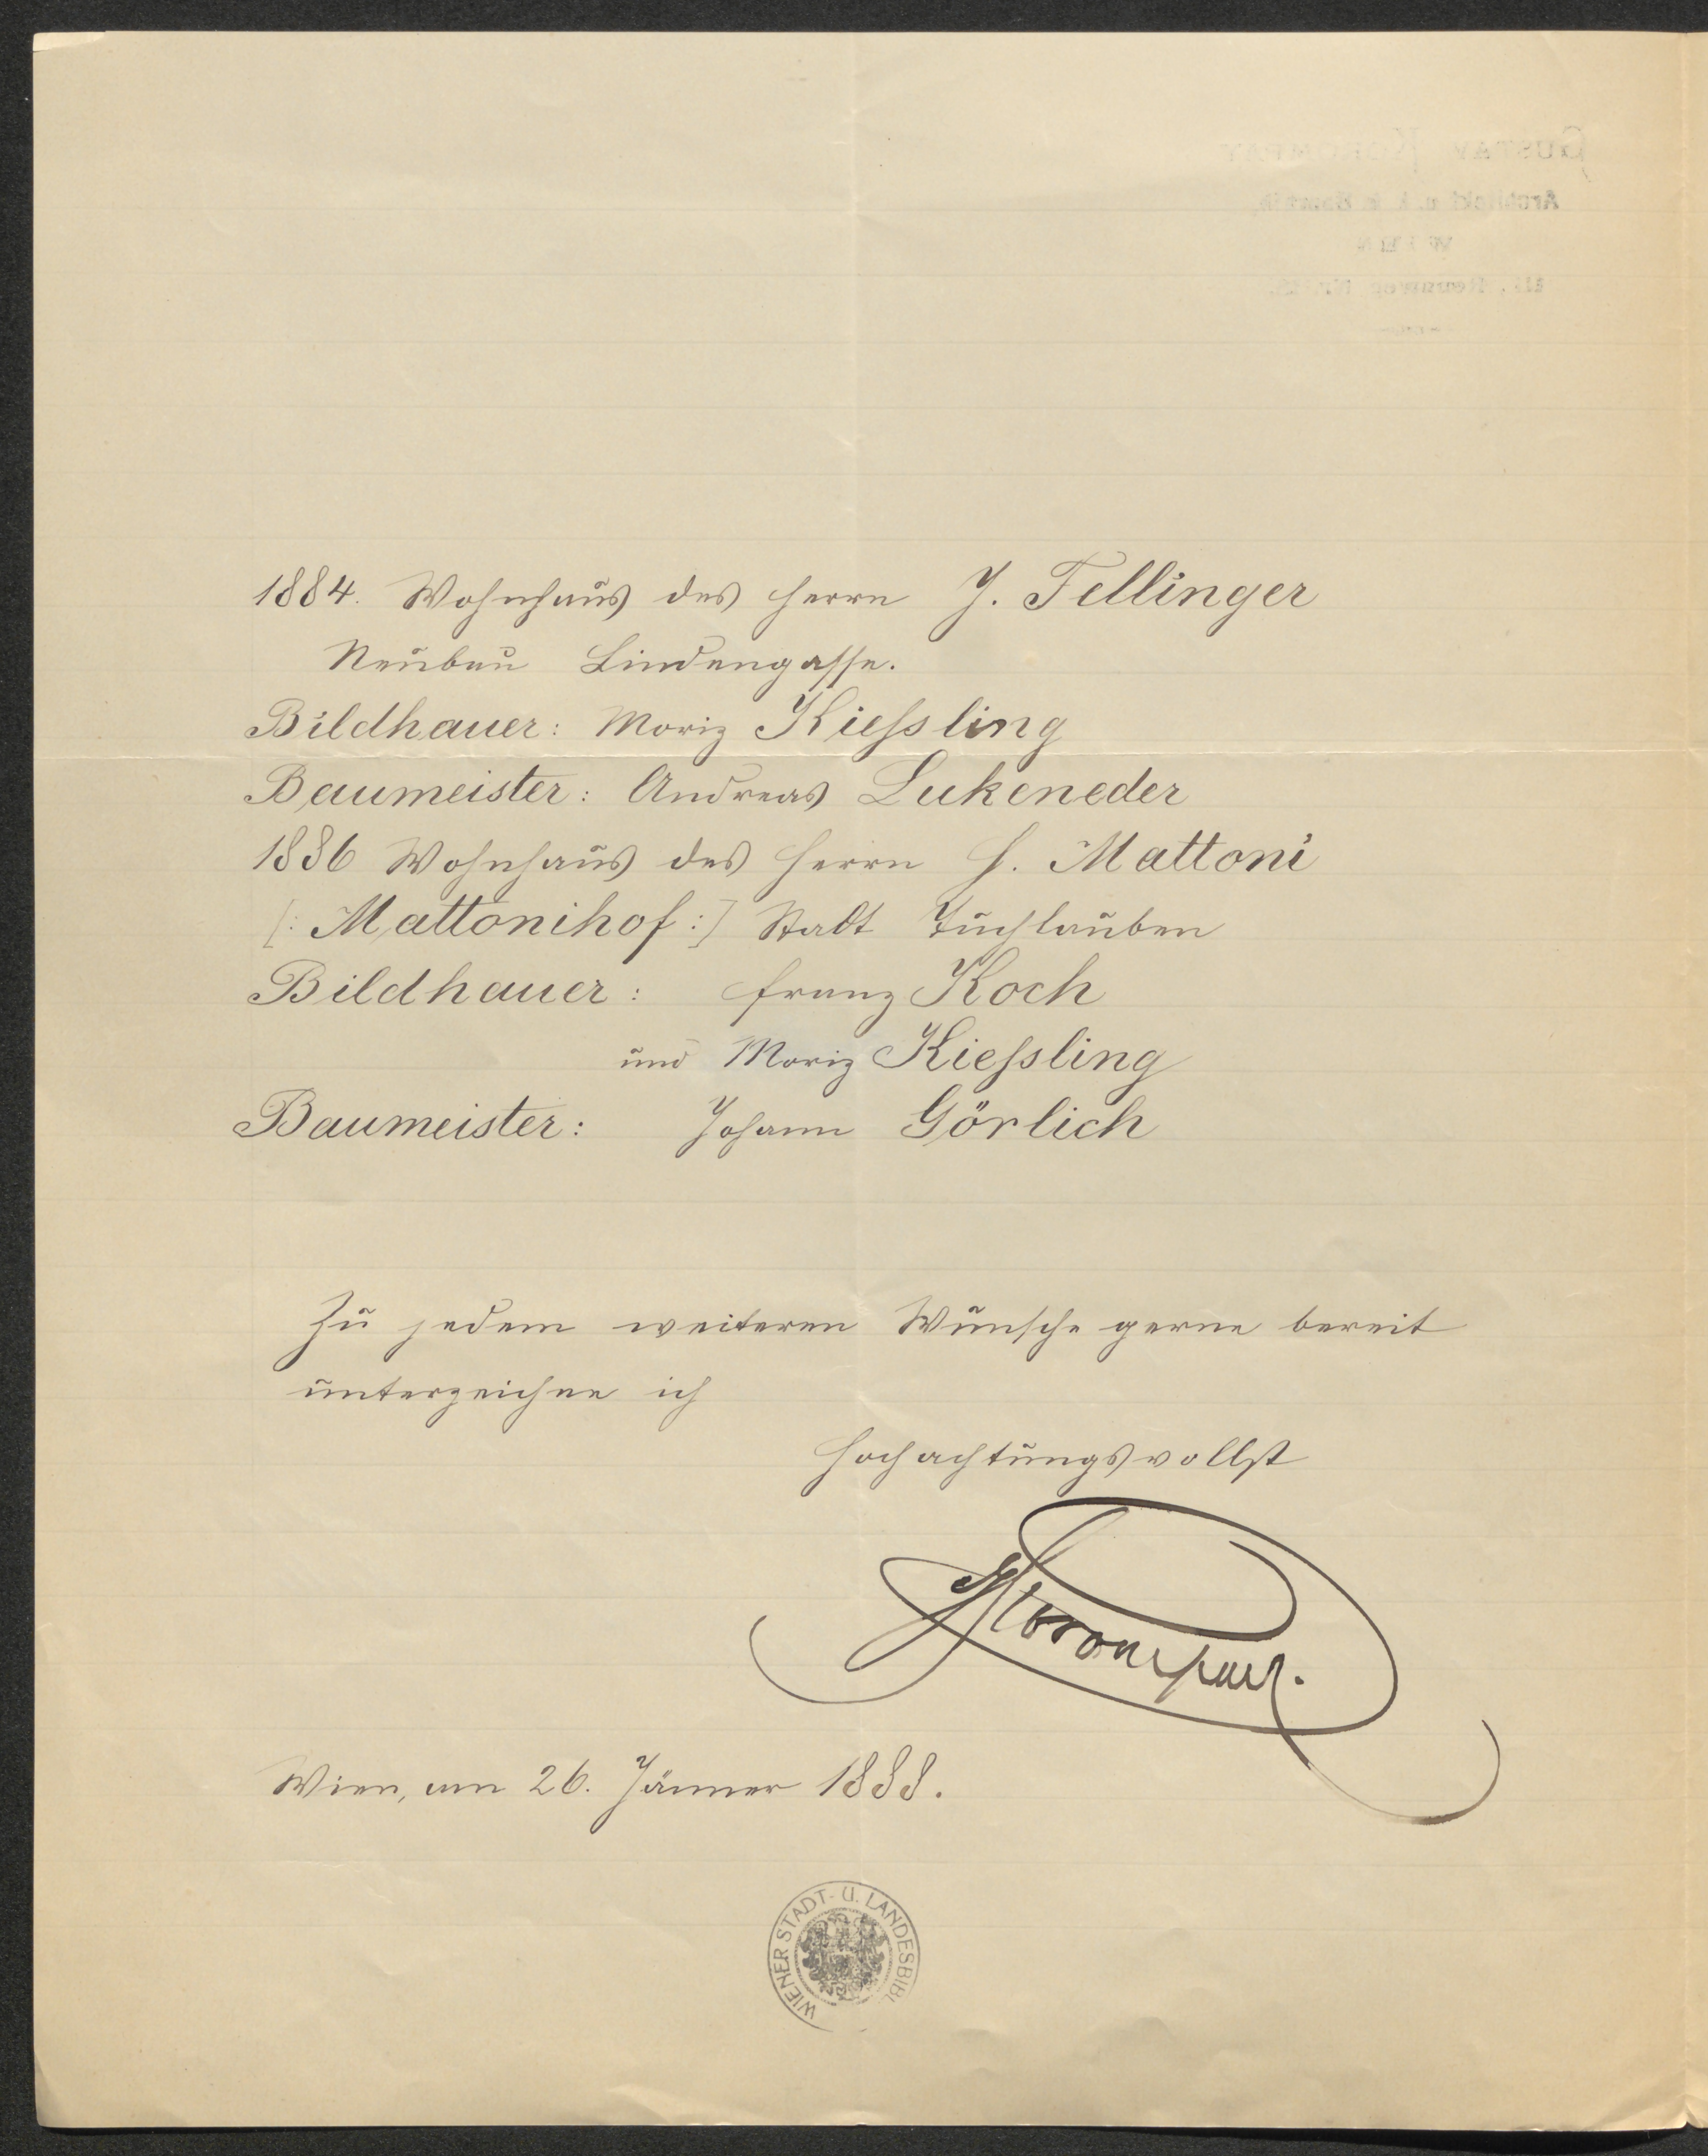 GUSTAV KOROMPAY
Architekt u. k. k. Baurath,
WIEN
III., Rennweg Nr.
1884. Wohnhaus des Herrn J. Fellinger
Neubau Lindengasse.
Bildhauer: Moriz Kießling
Baumeister: Andreas Lukeneder
1886 Wohnhaus des Herrn H. Mattoni
[: Mattonihof :] Stadt Tuchlauben
Bildhauer: Franz Koch
und Moriz Kießling
Baumeister: Johann Görlich
Zu jedem weiteren Wunsche gerne bereit
unterzeichne ich
Hochachtungsvollst
GKorompay.
Wien, am 26. Jänner 1888.
WIENER STADT- U. LANDESBIBL.